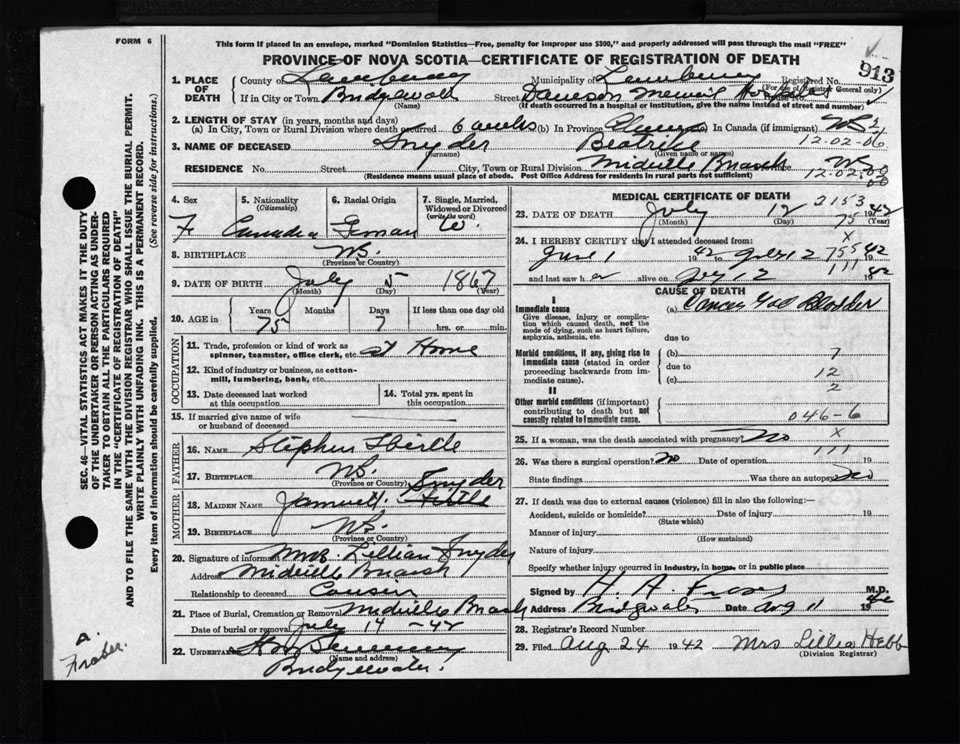 FORM 6
This form if placed in an envelope, marked "Dominion Statistics—Free, penalty for improper use $300," and properly addressed will pass through the mail "FREE"
PROVINCE OF NOVA SCOTIA—CERTIFICATE OF REGISTRATION OF DEATH
913
1. PLACE OF DEATH
County of Lunenburg Municipality of Lunenburg Registered No.
(For use of Registrar General only)
If in City or Town Bridgewater Street Dawson Memorial Hospital House No.
(Name) (If death occurred in a hospital or institution, give the name instead of street and number)
2. LENGTH OF STAY (in years, months and days)
(a) In City, Town or Rural Division where death occurred 6 weeks (b) In Province Always In Canada (if immigrant)
12-02-06
3. NAME OF DECEASED Snyder Beatrice
(Surname) (Given name or names)
RESIDENCE No. Street City, Town or Rural Division Midville Branch
(Residence means usual place of abode. Post Office Address for residents in rural parts not sufficient)
12-02-00
00
4. Sex F
5. Nationality (Citizenship) Canadian
6. Racial Origin German
7. Single, Married, Widowed or Divorced (write the word) W.
8. BIRTHPLACE N.S.
(Province or Country)
9. DATE OF BIRTH July 5 1867
(Month) (Day) (Year)
10. AGE in Years 75 Months Days 7 If less than one day old
hrs. or min.
OCCUPATION
11. Trade, profession or kind of work as spinner, teamster, office clerk, etc. at Home
12. Kind of industry or business, as cotton-mill, lumbering, bank, etc.
13. Date deceased last worked at this occupation
14. Total yrs. spent in this occupation
15. If married give name of wife or husband of deceased
FATHER
16. NAME Stephen
17. BIRTHPLACE N.S.
(Province or Country)
MOTHER
Snyder
18. MAIDEN NAME
19. BIRTHPLACE N.S.
(Province or Country)
20. Signature of informant Mrs. Lillian Snyder
Address Midville Branch
Relationship to deceased Cousin
21. Place of Burial, Cremation or Removal Midville Branch
Date of burial or removal July 14 -42
22. UNDERTAKER
(Name and address)
Bridgewater.
MEDICAL CERTIFICATE OF DEATH
2153
23. DATE OF DEATH July 12 1942
(Month) (Day)
75
x
24. I HEREBY CERTIFY that I attended deceased from:
June 1 1942 to July 12 1942
755
and last saw her alive on July 12 1942
111
CAUSE OF DEATH
I
Immediate cause
Give disease, injury or complication which caused death, not the mode of dying, such as heart failure, asphyxia, asthenia, etc.
(a) Cancer Gall Bladder
due to
Morbid conditions, if any, giving rise to immediate cause (stated in order proceeding backwards from immediate cause).
(b) 7
due to 12
(c) 2
II
Other morbid conditions (if important) contributing to death but not causally related to immediate cause.
046-6
25. If a woman, was the death associated with pregnancy? No x
111
26. Was there a surgical operation? No Date of operation 19
State findings Was there an autopsy? No
27. If death was due to external causes (violence) fill in also the following:—
Accident, suicide or homicide? Date of injury 19
(State which)
Manner of injury
(How sustained)
Nature of injury
Specify whether injury occurred in industry, in home, or in public place
Signed by H. A. M.D.
Address Bridgewater Date Aug 11 1942
28. Registrar's Record Number
29. Filed Aug 24 1942 Mrs Lillia Hebb
(Division Registrar)
SEC. 46—VITAL STATISTICS ACT MAKES IT THE DUTY OF THE UNDERTAKER OR PERSON ACTING AS UNDERTAKER TO OBTAIN ALL THE PARTICULARS REQUIRED IN THE "CERTIFICATE OF REGISTRATION OF DEATH" AND TO FILE THE SAME WITH THE DIVISION REGISTRAR WHO SHALL ISSUE THE BURIAL PERMIT.
WRITE PLAINLY WITH UNFADING INK. THIS IS A PERMANENT RECORD.
Every item of information should be carefully supplied. (See reverse side for instructions).
a.
Fraber.